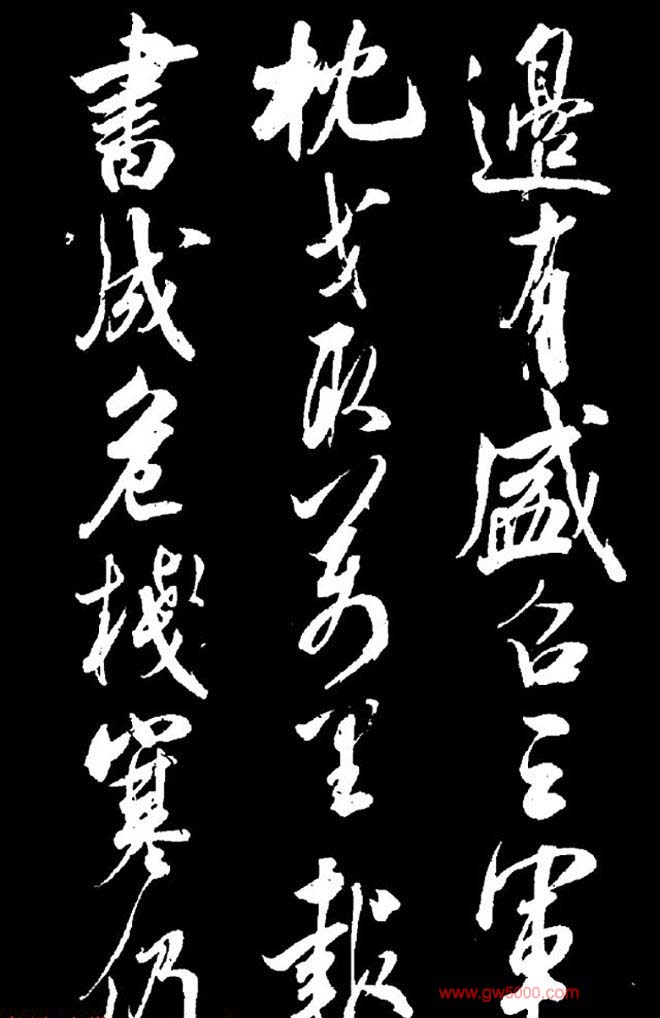 邊有盛召三軍
枕戈取萬里報
書成危棧寒仍
www.gw5000.com